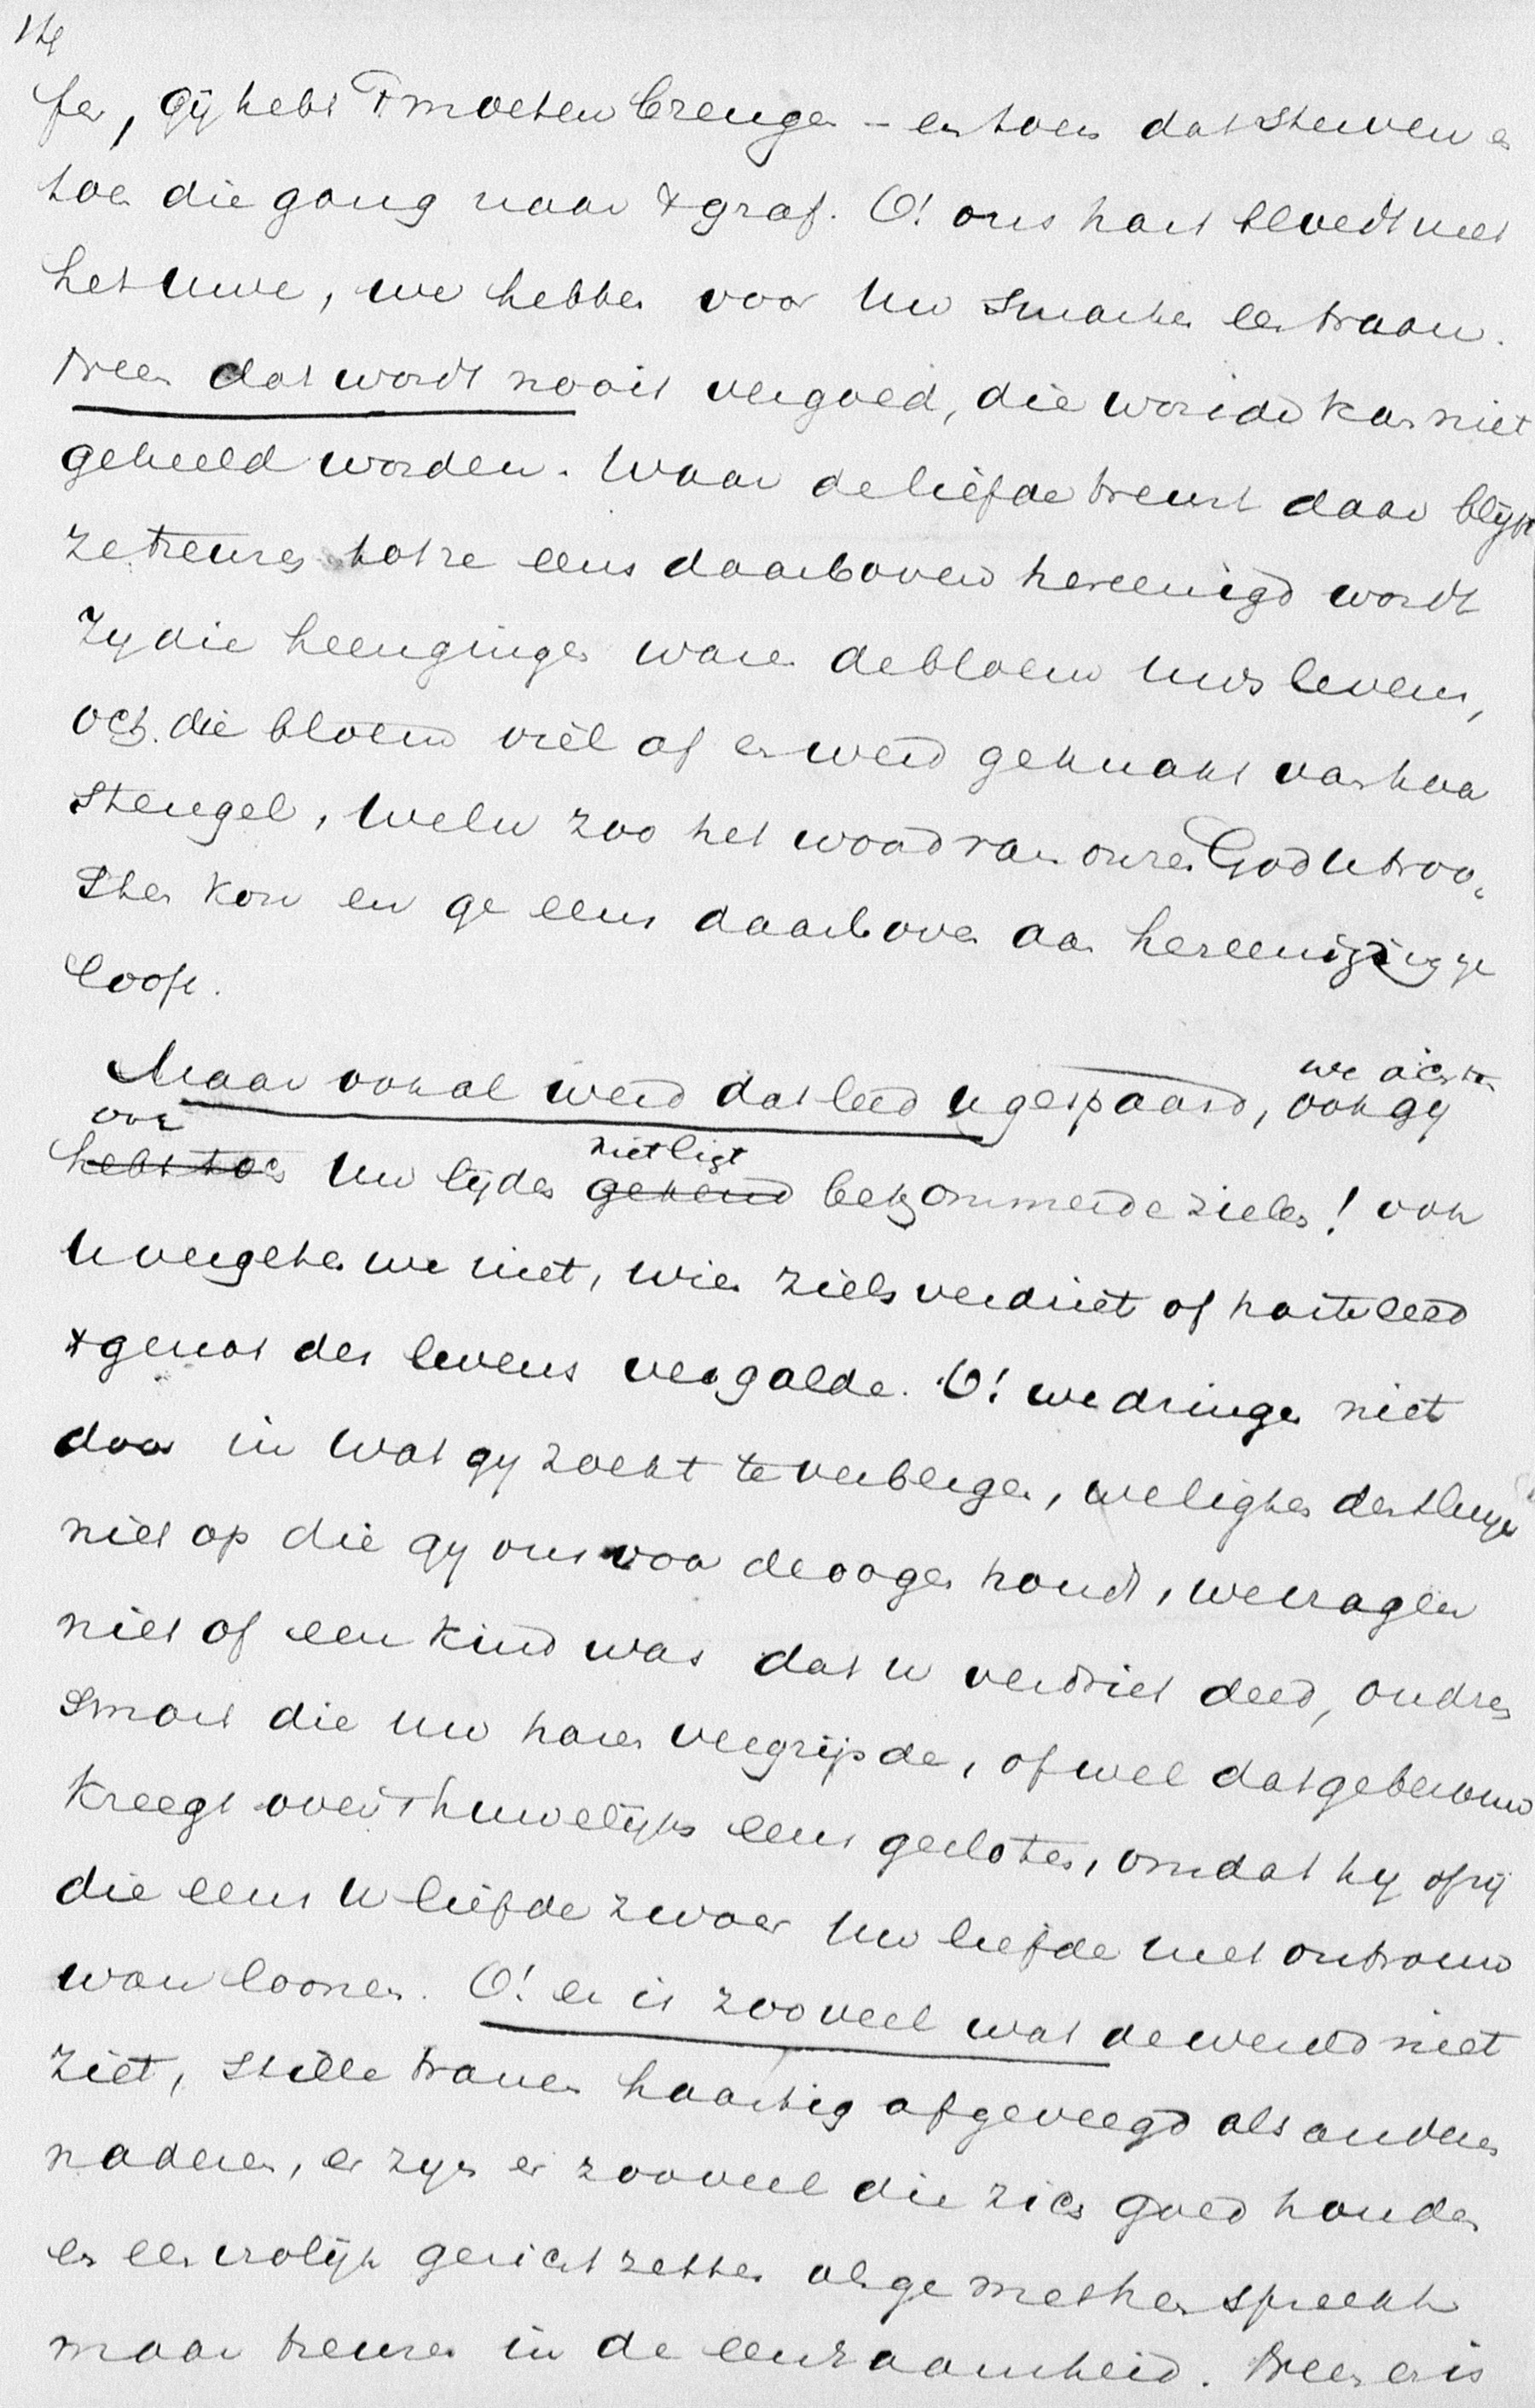 fer, gij hebt 't moeten brengen – en toen dat sterven en
toen die gang naar 't graf. O! ons hart bloedt met
het uwe, we hebben voor Uw smarten een traan.
Neen dat wordt nooit vergoed, die wonde kan niet
geheeld worden. Waar de liefde treurt daar blijft
ze treuren tot ze eens daarboven hereenigd wordt
Zij die heengingen waren de bloem uws levens,
och die bloem viel af en werd geknakt van haar
stengel, welu zoo het woord van onzen God u troo-
sten kon en ge eens daarboven aan hereeniging ge
looft.
Maar ook al werd dat leed u gespaard, ook gij
we achten
ook
hebt toch Uw lijden gekend bekommerde zielen! ook
niet ligt
U vergeten we niet, wien zielsverdriet of harteleed
't genot des levens vergalde. O! we dringen niet
door in wat gij zoekt te verbergen, we ligten den sluijer
niet op die gij ons voor de oogen houdt, we vragen
niet of een kind was dat u verdriet deed, ouders
smart die uw haren vergrijsde, of wel dat ge berouw
kreegt over 't huwelijk eens gesloten, omdat hij of zij
die eens U liefde zwoer Uw liefde met ontrouw
kon loonen. O! er is zooveel wat de wereld niet
ziet, stille tranen haastig afgeveegd als anderen
naderen, er zijn er zooveel die zich goed houden
en een vrolijk gezicht zetten als ge met hen spreekt
maar treuren in de eenzaamheid. Neen er is